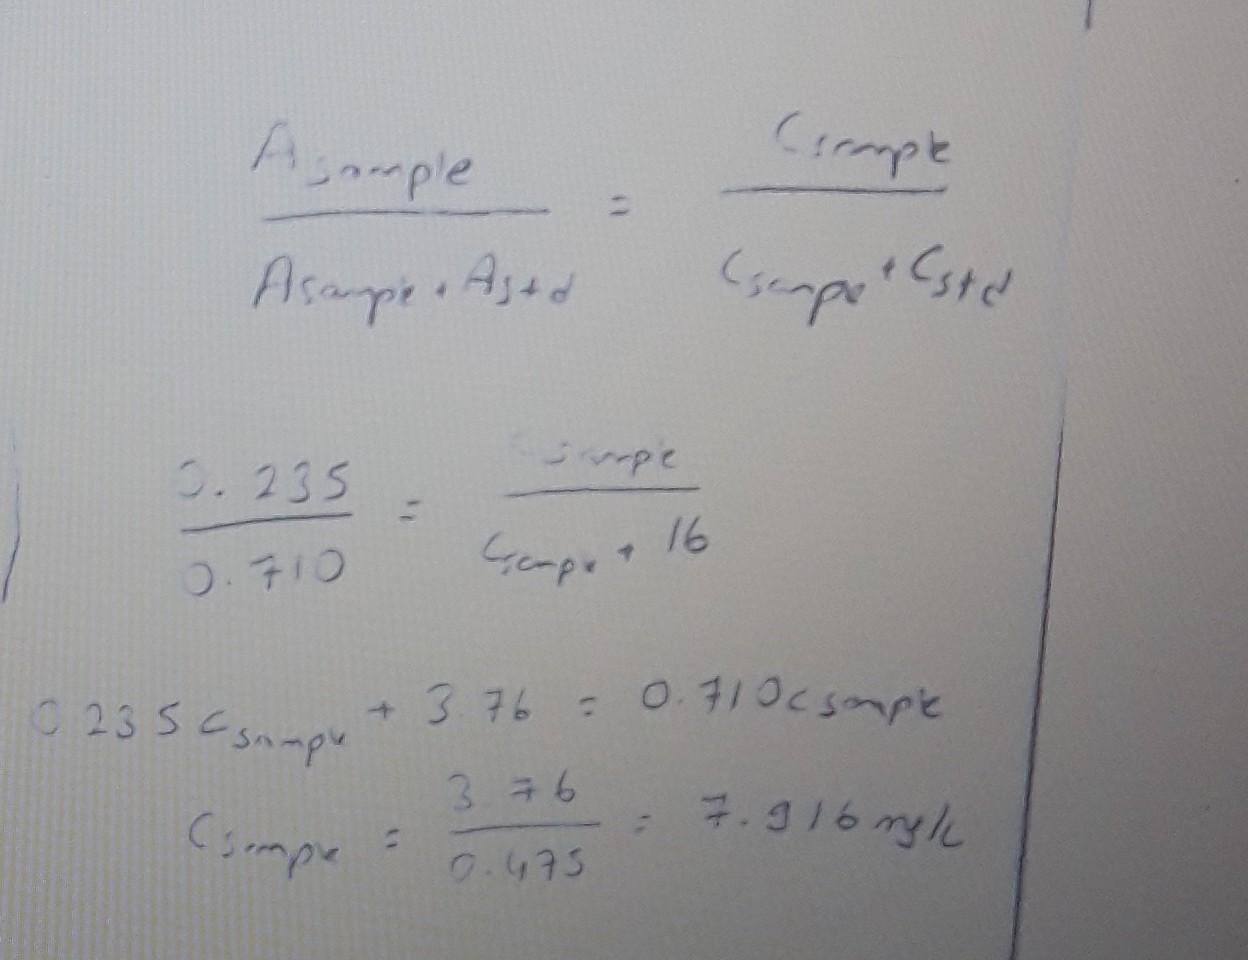 A sample / A sample + A std = C sample / C sample + C std
0.235 / 0.710 = C sample / C sample + 16
0.235 C sample + 3.76 = 0.710 C sample
C sample = 3.76 / 0.475 = 7.916 mg/L